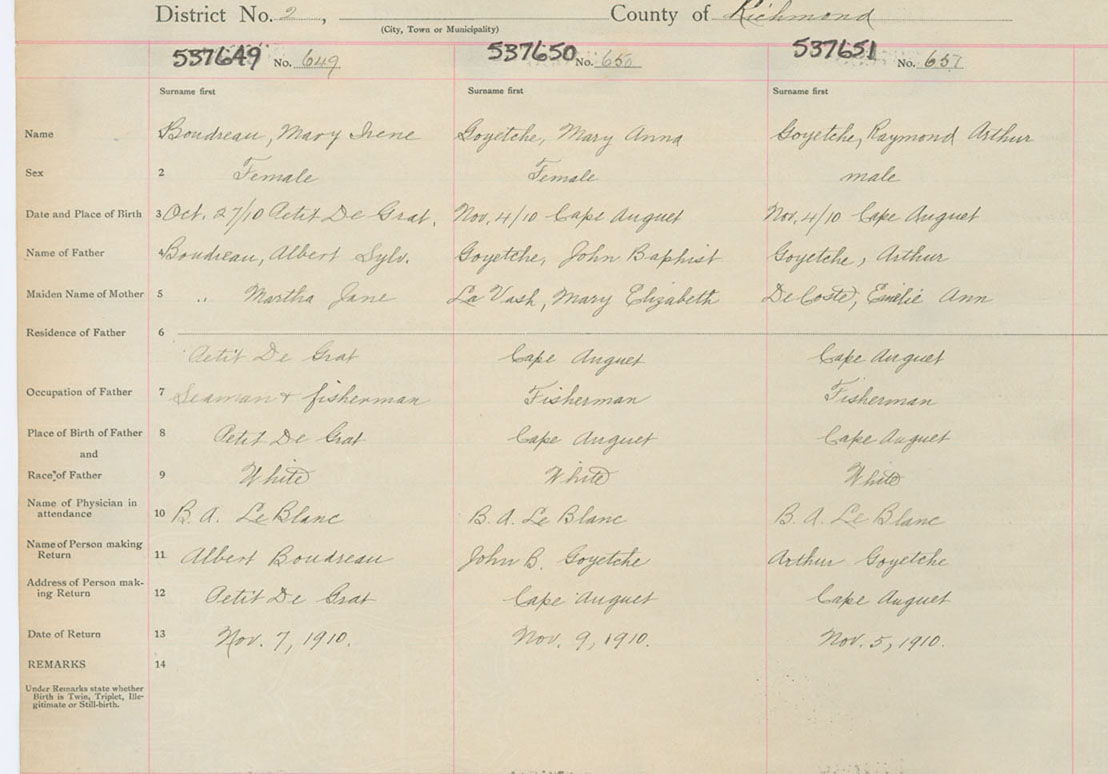 District No. 2, County of Richmond
(City, Town or Municipality)
537649 No. 649 537650 No. 650 537651 No. 651
Surname first Surname first Surname first
Name Boudreau, Mary Irene Goyetche, Mary Anna Goyetche, Raymond Arthur
Sex 2 Female Female male
Date and Place of Birth 3 Oct. 27/10 Petit De Grat. Nov. 4/10 Cape Auguet Nov. 4/10 Cape Auguet
Name of Father 4 Boudreau, Albert Sylv. Goyetche, John Baptist Goyetche, Arthur
Maiden Name of Mother 5 " Martha Jane La Vash, Mary Elizabeth De Coste, Emelie Ann
Residence of Father 6
Petit De Grat Cape Auguet Cape Auguet
Occupation of Father 7 Seaman & fisherman Fisherman Fisherman
Place of Birth of Father 8 Petit De Grat Cape Auguet Cape Auguet
and
Race of Father 9 White White White
Name of Physician in
attendance 10 B. A. Le Blanc B. A. Le Blanc B. A. Le Blanc
Name of Person making
Return 11 Albert Boudreau John B. Goyetche Arthur Goyetche
Address of Person mak-
ing Return 12 Petit De Grat Cape Auguet Cape Auguet
Date of Return 13 Nov. 7, 1910. Nov. 9, 1910. Nov. 5, 1910.
REMARKS 14
Under Remarks state whether
Birth is Twin, Triplet, Ille-
gitimate or Still-birth.